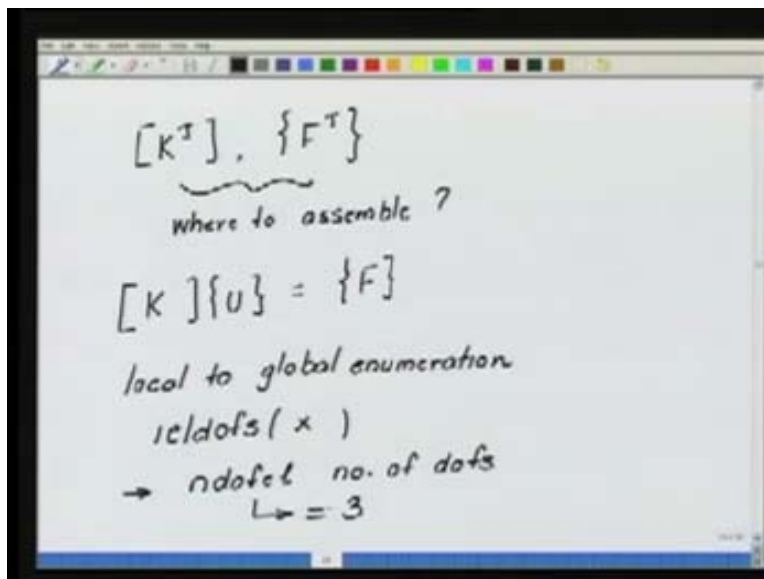 [K^T], {F^T}
where to assemble ?
[K ]{U} = {F}
local to global enumeration
ieldofs( x )
→ ndofel no. of dofs
↳ = 3